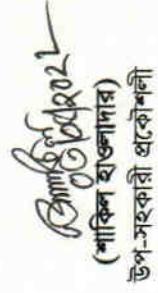 (শাকিল হাওলাদার)
উপ-সহকারী প্রকৌশলী